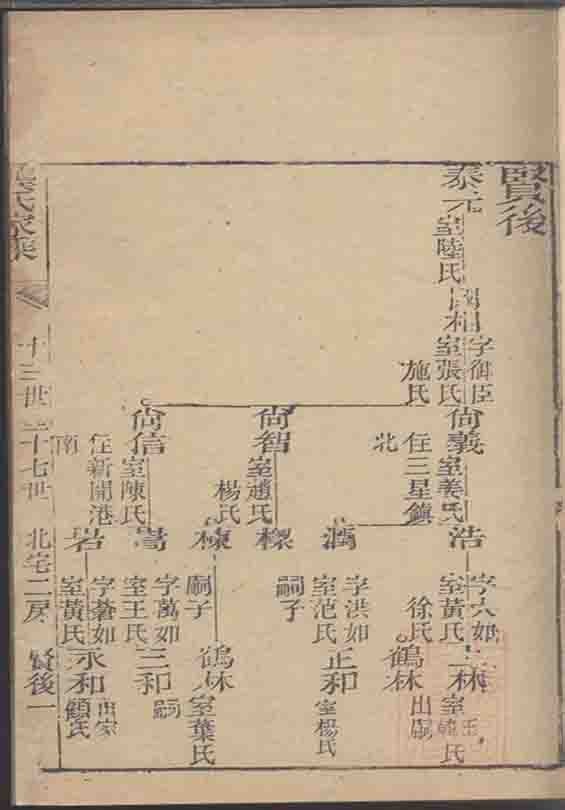 賢後
泰元
室陸氏
國相
字御臣
室張氏
施氏
尚義
室姜氏
住三星鎮
北
尚智
室趙氏
楊氏
尚信
室陳氏
住新開港
南
浩
字大如
室黃氏
徐氏
字洪如
室范氏
嗣子
棟
嗣子
嵩
字萬如
室王氏
岩
字蒼如
室黃氏
林
室
氏
鶴林
出嗣
正和
室楊氏
鶴林
室葉氏
三和
嗣
永和
出家
顧氏
氏家乘
十三世
十七世
北宅二房
賢後一